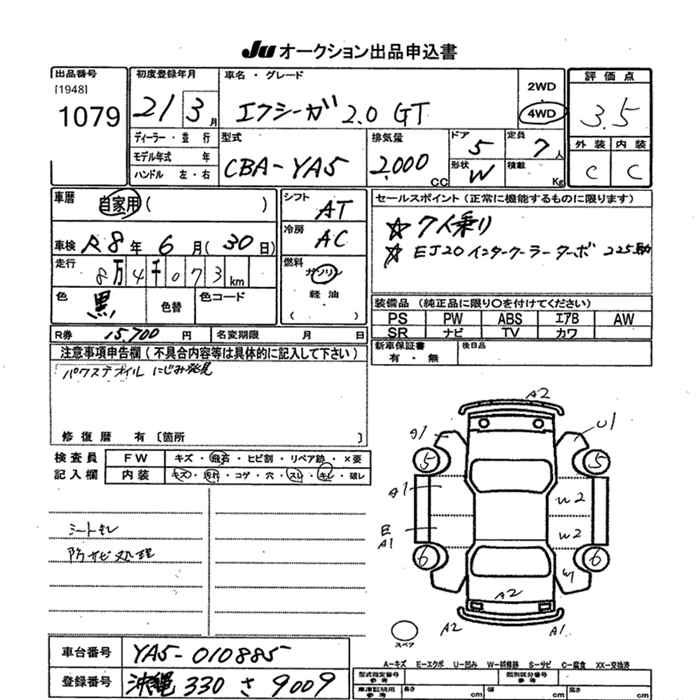 JU オークション出品申込書
出品番号 初度登録年月 車名・グレード 2WD 評価点
[1948]
1079 21 3月 エクシーガ 2.0 GT 4WD 3.5
ディーラー・並行 型式 排気量 ドア 5 定員 7人 外装 内装
モデル年式 年 CBA-YA5 2,000cc 形状 W 積載 Kg C C
ハンドル 左・右
車歴 自家用( ) シフト AT セールスポイント(正常に機能するものに限ります)
車検 R8年6月(30日) 冷房 AC ☆7人乗り
走行 8万4千073km 燃料 ガソリン ☆EJ20 インタークーラーターボ 225馬力
色 黒 色替 色コード 軽油 ( )
装備品(純正品に限り○を付けてください)
PS PW ABS エアB AW
SR ナビ TV カワ
R券 15,700円 名変期限 月 日
新車保証書 有・無 後日品
注意事項申告欄(不具合内容等は具体的に記入して下さい)
パワステオイル にじみ発見
修復歴 有〔箇所 〕
検査員 FW キズ・飛石・ヒビ割・リペア跡・×要
記入欄 内装 キズ・汚れ・コゲ・穴・スレ・キレ・破レ
シートキレ
防サビ処理
A2
A1 U1
5 5
A1 W2
E A1 W2
6 6
W1
A2
A1
スペア
A-キズ E-エクボ U-凹み W-補修跡 S-サビ C-腐食 XX-交換済
車台番号 YA5-010885
登録番号 沖縄 330 さ 9009
型式指定番号 参考 類別区分番号 参考
車庫証明用 参考 長さ cm 幅 cm 高さ cm